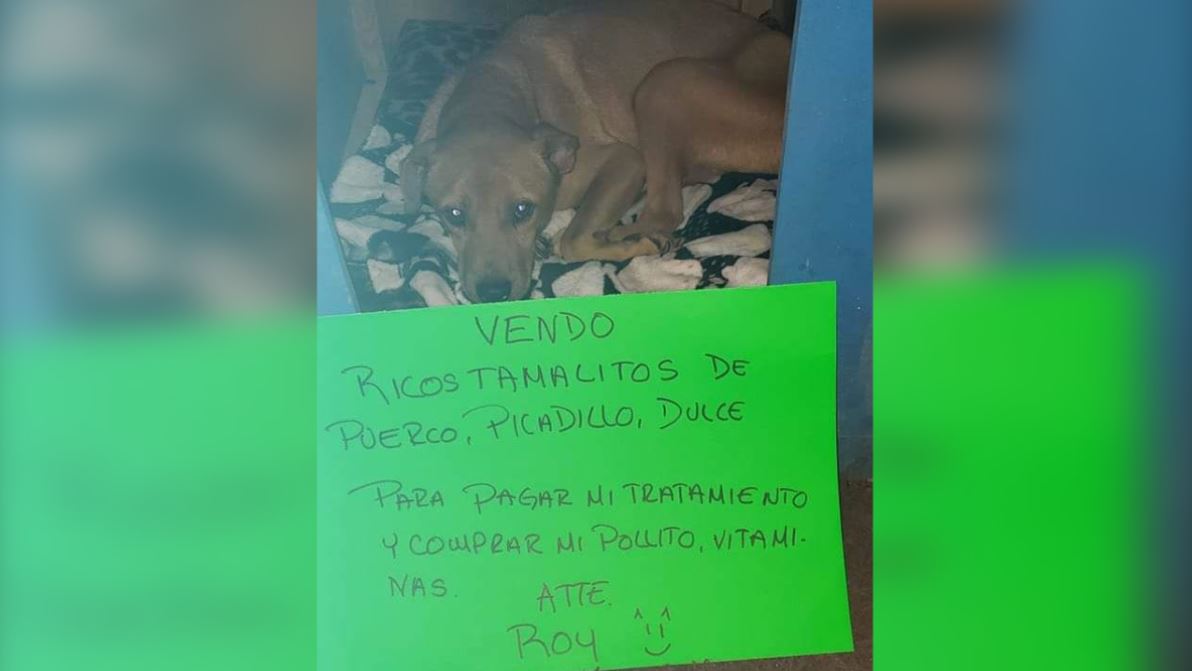 VENDO
RICOS TAMALITOS DE
PUERCO, PICADILLO, DULCE
PARA PAGAR MI TRATAMIENTO
Y COMPRAR MI POLLITO, VITAMI-
NAS.
ATTE.
ROY